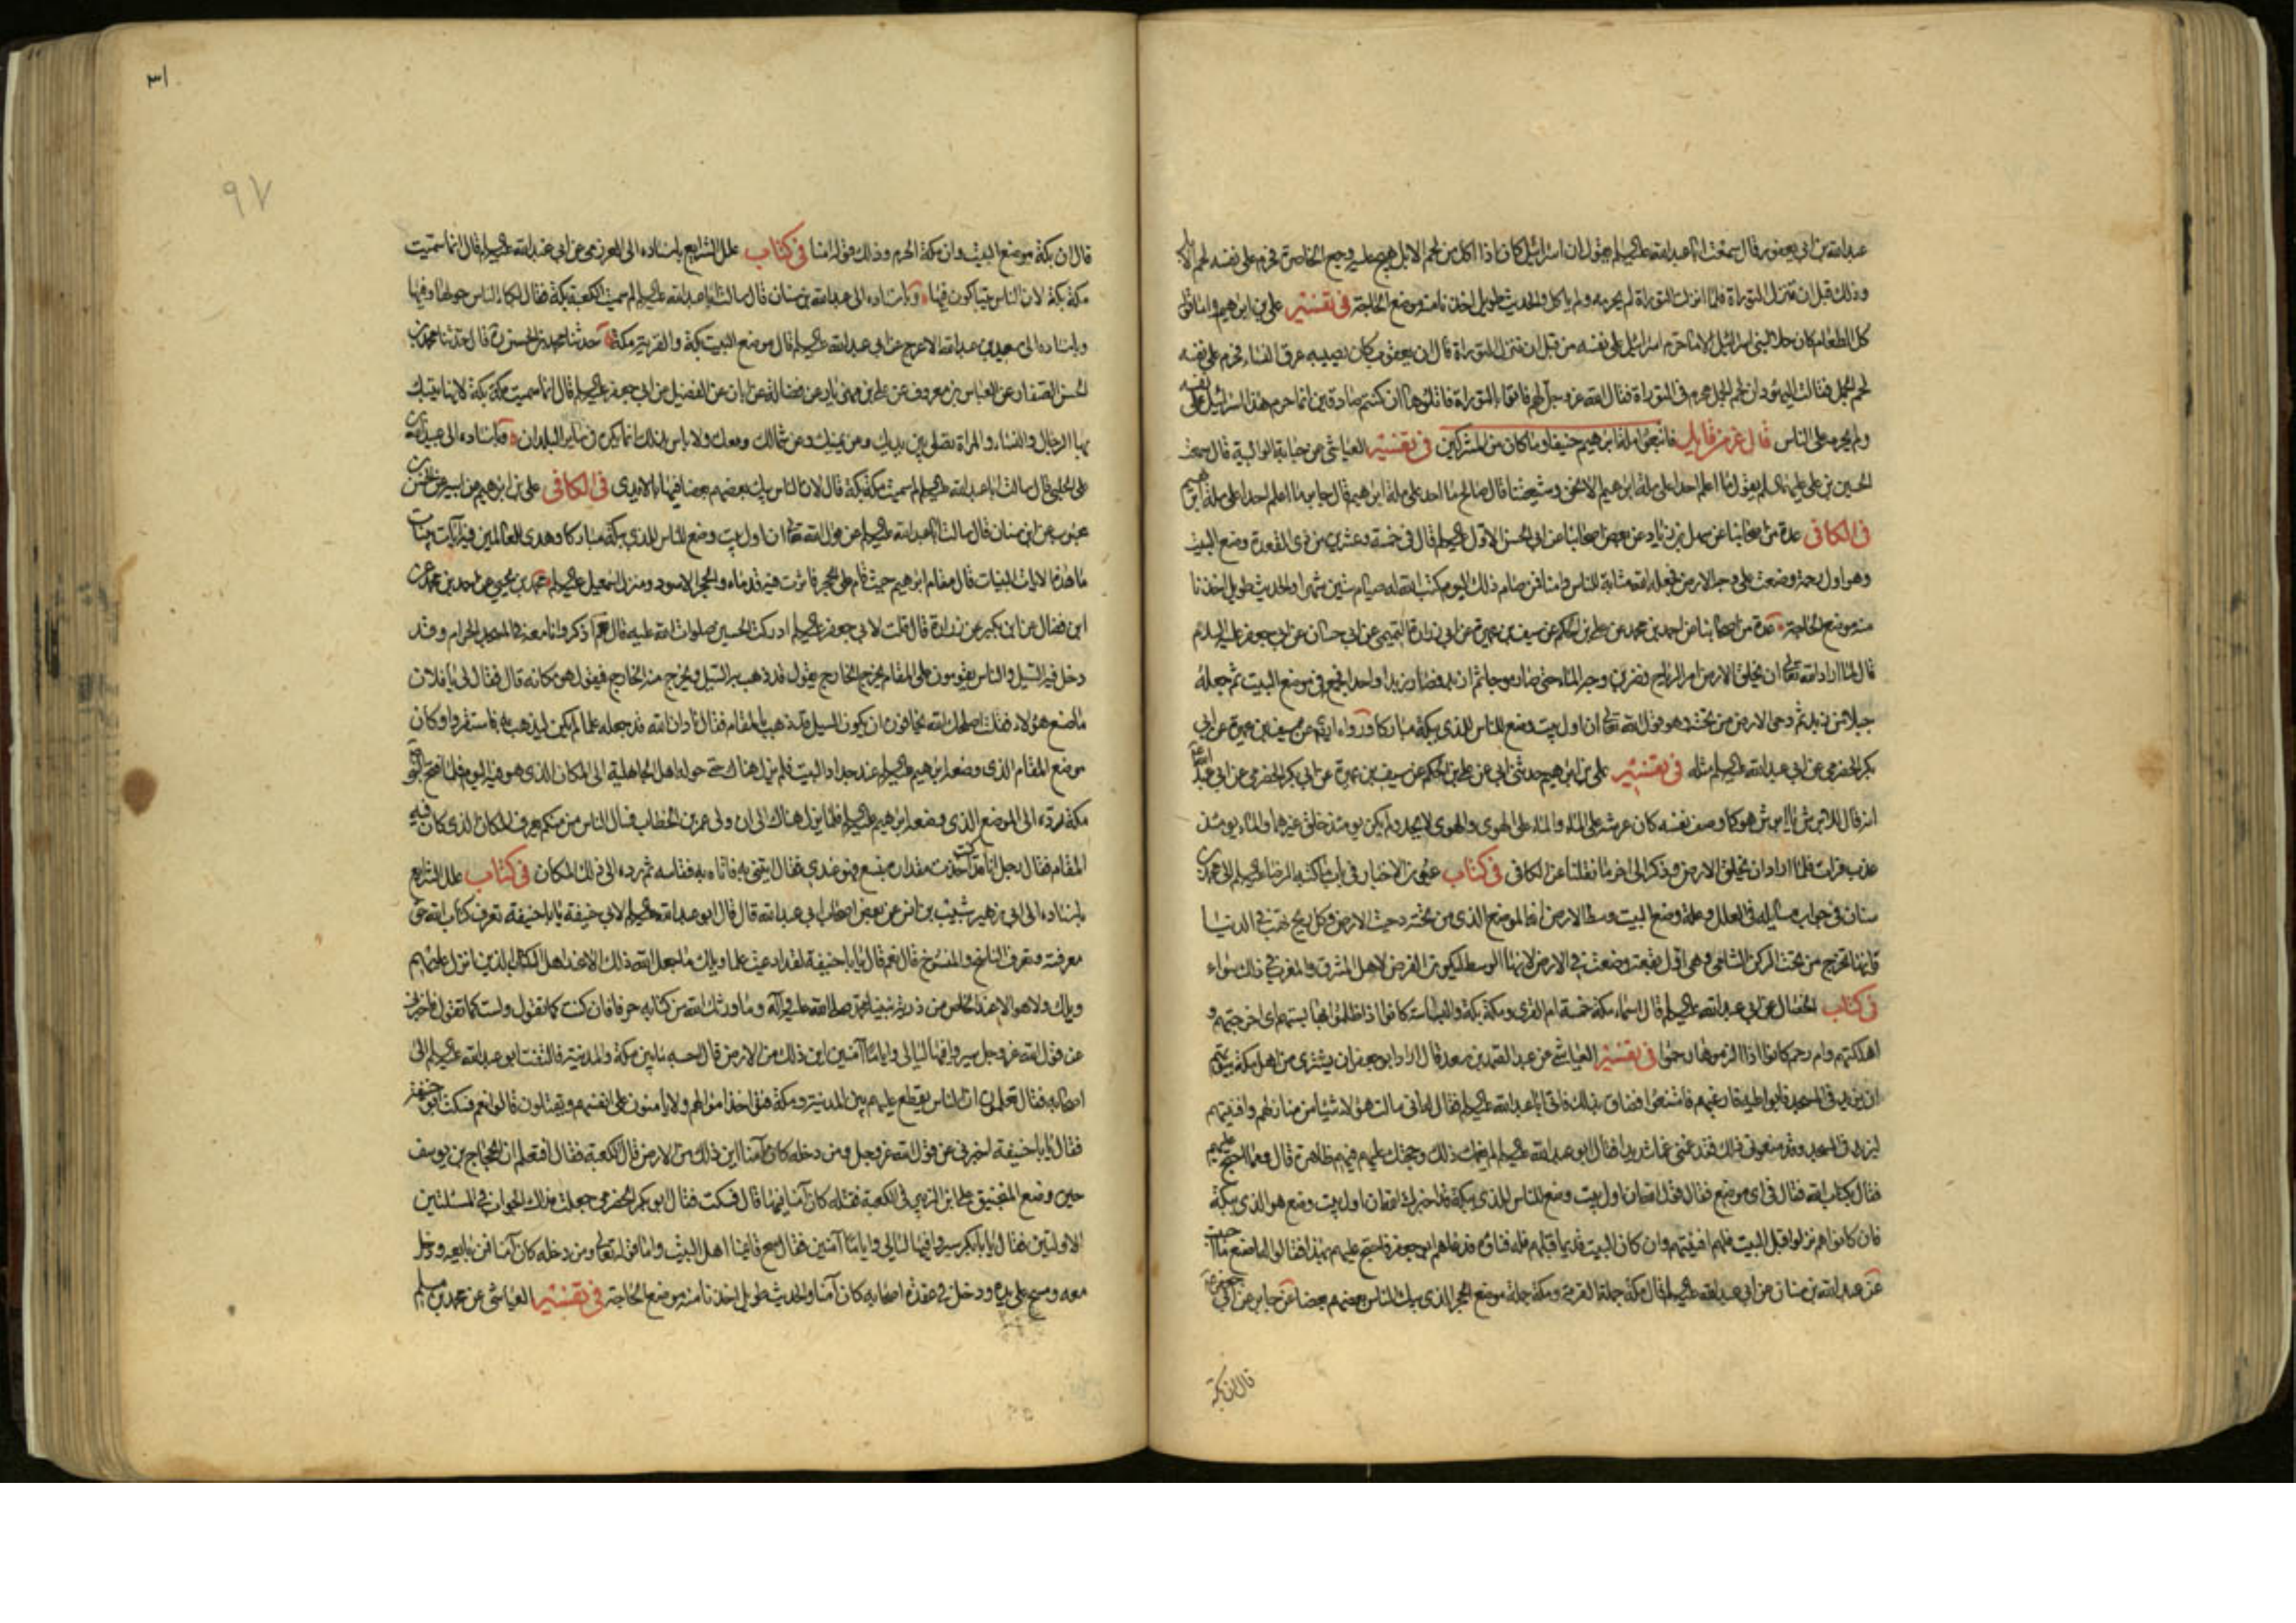 عبدالله بن ابي يعفور قال سمعت ابا عبدالله عليه السلم يقول ان اسرائيل كان اذا اكل من لحم الابل هيج عليه وجع الخاصرة فحرم على نفسه لحم الابل
وذلك قبل ان تنزل التوراة فلما انزلت التوراة لم يحرمه ولم ياكله والحديث طويل اخذنا منه موضع الحاجة في تفسير علي بن ابرهيم واما قوله
كل الطعام كان حلا لبني اسرائيل الا ما حرم اسرائيل على نفسه من قبل ان تنزل التوراة قال ان يعقوب كان يصيبه عرق النساء فحرم على نفسه
لحم الجمل فقالت اليهود ان لحم الجمل محرم في التوراة فقال الله عز وجل لهم فاتوا بالتوراة فاتلوها ان كنتم صادقين انما حرم هذا اسرائيل على نفسه
ولم يحرمه على الناس قال عز من قايل فاتبعوا ملة ابرهيم حنيفا وما كان من المشركين في تفسير العياشي عن حبابة الوالبية قال سمعت
الحسين بن علي عليهما السلم يقول ما اعلم احدا على ملة ابرهيم الا نحن وشيعتنا قال صالح ما احد على ملة ابرهيم قال جابر ما اعلم احدا على ملة ابرهيم
في الكافي عدة من اصحابنا عن سهل بن زياد عن بعض اصحابنا عن ابي الحسن الاول عليه السلم قال في خمسة وعشرين من ذي القعدة وضع البيت
وهو اول رحمة وضعت على وجه الارض فجعله الله مثابة للناس وامنا فمن صام ذلك اليوم كتب الله له صيام ستين شهرا والحديث طويل اخذنا
منه موضع الحاجة عدة من اصحابنا عن احمد بن محمد عن علي بن الحكم عن سيف بن عميرة عن ابي زرارة التميمي عن ابي حسان عن ابي جعفر عليه السلام
قال لما اراد الله تعالى ان يخلق الارض امر الرياح فضربن وجه الماء حتى صار موجا ثم ازبد فصار زبدا واحدا فجمعه في موضع البيت ثم جعله
جبلا من زبد ثم دحى الارض من تحته وهو قول الله تعالى ان اول بيت وضع للناس للذي ببكة مباركا ورواه ايضا عن سيف بن عميرة عن ابي
بكر الحضرمي عن ابي عبدالله عليه السلم مثله في تفسير علي بن ابرهيم حدثني ابي عن علي بن الحكم عن سيف بن عميرة عن ابي بكر الحضرمي عن ابي عبدالله
انه قال للابرش يا ابرش هو كما وصف نفسه كان عرشه على الماء والماء على الهوى والهوى لا يحد ولم يكن يومئذ خلق غيرهما والماء يومئذ
عذب فرات فلما اراد ان يخلق الارض وذكر الى اخر ما نقلنا عن الكافي في كتاب عيون الاخبار في باب ما كتبه الرضا عليه السلم الى محمد بن
سنان في جواب مسائله في العلل وعلة وضع البيت وسط الارض انه الموضع الذي من تحته دحيت الارض وكل ريح تهب في الدنيا
فانها تخرج من تحت الركن الشامي وهي اول بقعة وضعت في الارض لانها الوسط ليكون الفرض لاهل المشرق والمغرب في ذلك سواء
في كتاب الخصال عن ابي عبدالله عليه السلم قال اسماء مكة خمسة ام القرى ومكة وبكة والبساسة كانوا اذا ظلموا بها بستهم اي اخرجتهم و
اهلكتهم وام رحم كانوا اذا لزموها رحموا في تفسير العياشي عن عبد الصمد بن سعد قال اراد ابو جعفر ان يشتري من اهل مكة بيوتهم
ان يزيد في المسجد فابوا عليه فارغبهم فامتنعوا فضاق بذلك فاتى ابا عبدالله عليه السلم فقال له اني سالت هؤلاء شيئا من منازلهم وافنيتهم
لنزيد في المسجد وقد منعوني ذلك فقد غمني غما شديدا فقال ابو عبدالله عليه السلم لم يغمك ذلك وحجتك عليهم فيهم ظاهرة قال وبما احتج عليهم
فقال بكتاب الله فقال في اي موضع فقال قول الله ان اول بيت وضع للناس للذي ببكة قد اخبرك الله ان اول بيت وضع هو الذي ببكة
فان كانوا هم نزلوا قبل البيت فلهم افنيتهم وان كان البيت قديما قبلهم فله فناؤه فدعاهم ابو جعفر فاحتج عليهم بهذا فقالوا له اصنع ما احببت
عن عبدالله بن سنان عن ابي عبدالله عليه السلم قال مكة جملة القرية وبكة جملة موضع الحجر الذي يبك الناس بعضهم بعضا عن جابر عن ابي جعفر
قال ان بكة
٣١
٩٧
قال ان بكة موضع البيت وان مكة الحرم وذلك قوله امنا في كتاب علل الشرايع باسناده الى العرزمي عن ابي عبدالله عليه السلم قال انما سميت
مكة بكة لان الناس يتباكون فيها وباسناده الى عبدالله بن سنان قال سالت ابا عبدالله عليه السلم لم سميت الكعبة بكة فقال لبكاء الناس حولها وفيها
وباسناده الى سعيد بن عبدالله الاعرج عن ابي عبدالله عليه السلم قال موضع البيت بكة والقرية مكة حدثنا محمد بن الحسن ره قال حدثنا محمد بن
الحسن الصفار عن العباس بن معروف عن علي بن مهزيار عن فضالة عن ابان عن الفضيل عن ابي جعفر عليه السلم قال انما سميت مكة بكة لانها يبتك
بها الرجال والنساء والمراة تصلي بين يديك وعن يمينك وعن شمالك ومعك ولا باس بذلك انما يكره في ساير البلدان وباسناده الى عبيدالله بن
علي الحلبي قال سالت ابا عبدالله عليه السلم لم سميت مكة بكة قال لان الناس يبك بعضهم بعضا فيها بالايدي في الكافي علي بن ابرهيم عن ابيه عن الحسن بن
محبوب عن ابن سنان قال سالت ابا عبدالله عليه السلم عن قول الله تعالى ان اول بيت وضع للناس للذي ببكة مباركا وهدى للعالمين فيه ايات بينات
ما هذه الايات البينات قال مقام ابرهيم حيث قام على الحجر فاثرت فيه قدماه والحجر الاسود ومنزل اسمعيل عليه السلم محمد بن يحيى عن احمد بن محمد عن
ابن فضال عن ابن بكير عن زرارة قال قلت لابي جعفر عليه السلم ادركت الحسين صلوات الله عليه قال نعم اذكر وانا معه في المسجد الحرام وقد
دخل فيه السيل والناس يقومون على المقام يخرج الخارج يقول قد ذهب به السيل ويخرج منه الخارج فيقول هو مكانه قال فقال لي يا فلان
ما صنع هؤلاء فقلت اصلحك الله يخافون ان يكون السيل قد ذهب بالمقام فقال ناد ان الله قد جعله علما لم يكن ليذهب به فاستقروا وكان
موضع المقام الذي وضعه ابرهيم عليه السلم عند جدار البيت فلم يزل هناك حتى حوله اهل الجاهلية الى المكان الذي هو فيه اليوم فلما فتح النبي
مكة رده الى الموضع الذي وضعه ابرهيم عليه السلم فلم يزل هناك الى ان ولى عمر بن الخطاب فسال الناس من منكم يعرف المكان الذي كان فيه
المقام فقال رجل انا قد كنت اخذت مقداره بنسع فهو عندي فقال ايتني به فاتاه به فقاسه ثم رده الى ذلك المكان في كتاب علل الشرايع
باسناده الى ابي زهير شبيب بن انس عن بعض اصحاب ابي عبدالله قال قال ابو عبدالله عليه السلم لابي حنيفة يا ابا حنيفة تعرف كتاب الله حق
معرفته وتعرف الناسخ والمنسوخ قال نعم قال يا ابا حنيفة لقد ادعيت علما ويلك ما جعل الله ذلك الا عند اهل الكتاب الذين انزل عليهم
ويلك ولا هو الا عند الخاص من ذرية نبينا محمد صلى الله عليه وآله وما ورثك الله من كتابه حرفا فان كنت كما تقول ولست كما تقول فاخبرني
عن قول الله عز وجل سيروا فيها ليالي واياما آمنين اين ذلك من الارض قال احسبه ما بين مكة والمدينة فالتفت ابو عبدالله عليه السلم الى
اصحابه فقال تعلمون ان الناس يقطع عليهم بين المدينة ومكة فتؤخذ اموالهم ولا يامنون على انفسهم ويقتلون قالوا نعم فسكت ابو حنيفة
فقال يا ابا حنيفة اخبرني عن قول الله عز وجل ومن دخله كان آمنا اين ذلك من الارض قال الكعبة فقال افتعلم ان الحجاج بن يوسف
حين وضع المنجنيق على ابن الزبير في الكعبة فقتله كان آمنا فيها قال فسكت فقال ابو بكر الحضرمي جعلت فداك الجواب في المسئلتين
الاولتين فقال يا ابا بكر سيروا فيها ليالي واياما آمنين فقال مع قائمنا اهل البيت واما قوله تعالى ومن دخله كان آمنا فمن بايعه ودخل
معه ومسح على يده ودخل في عقدة اصحابه كان آمنا والحديث طويل اخذنا منه موضع الحاجة في تفسير العياشي عن محمد بن مسلم